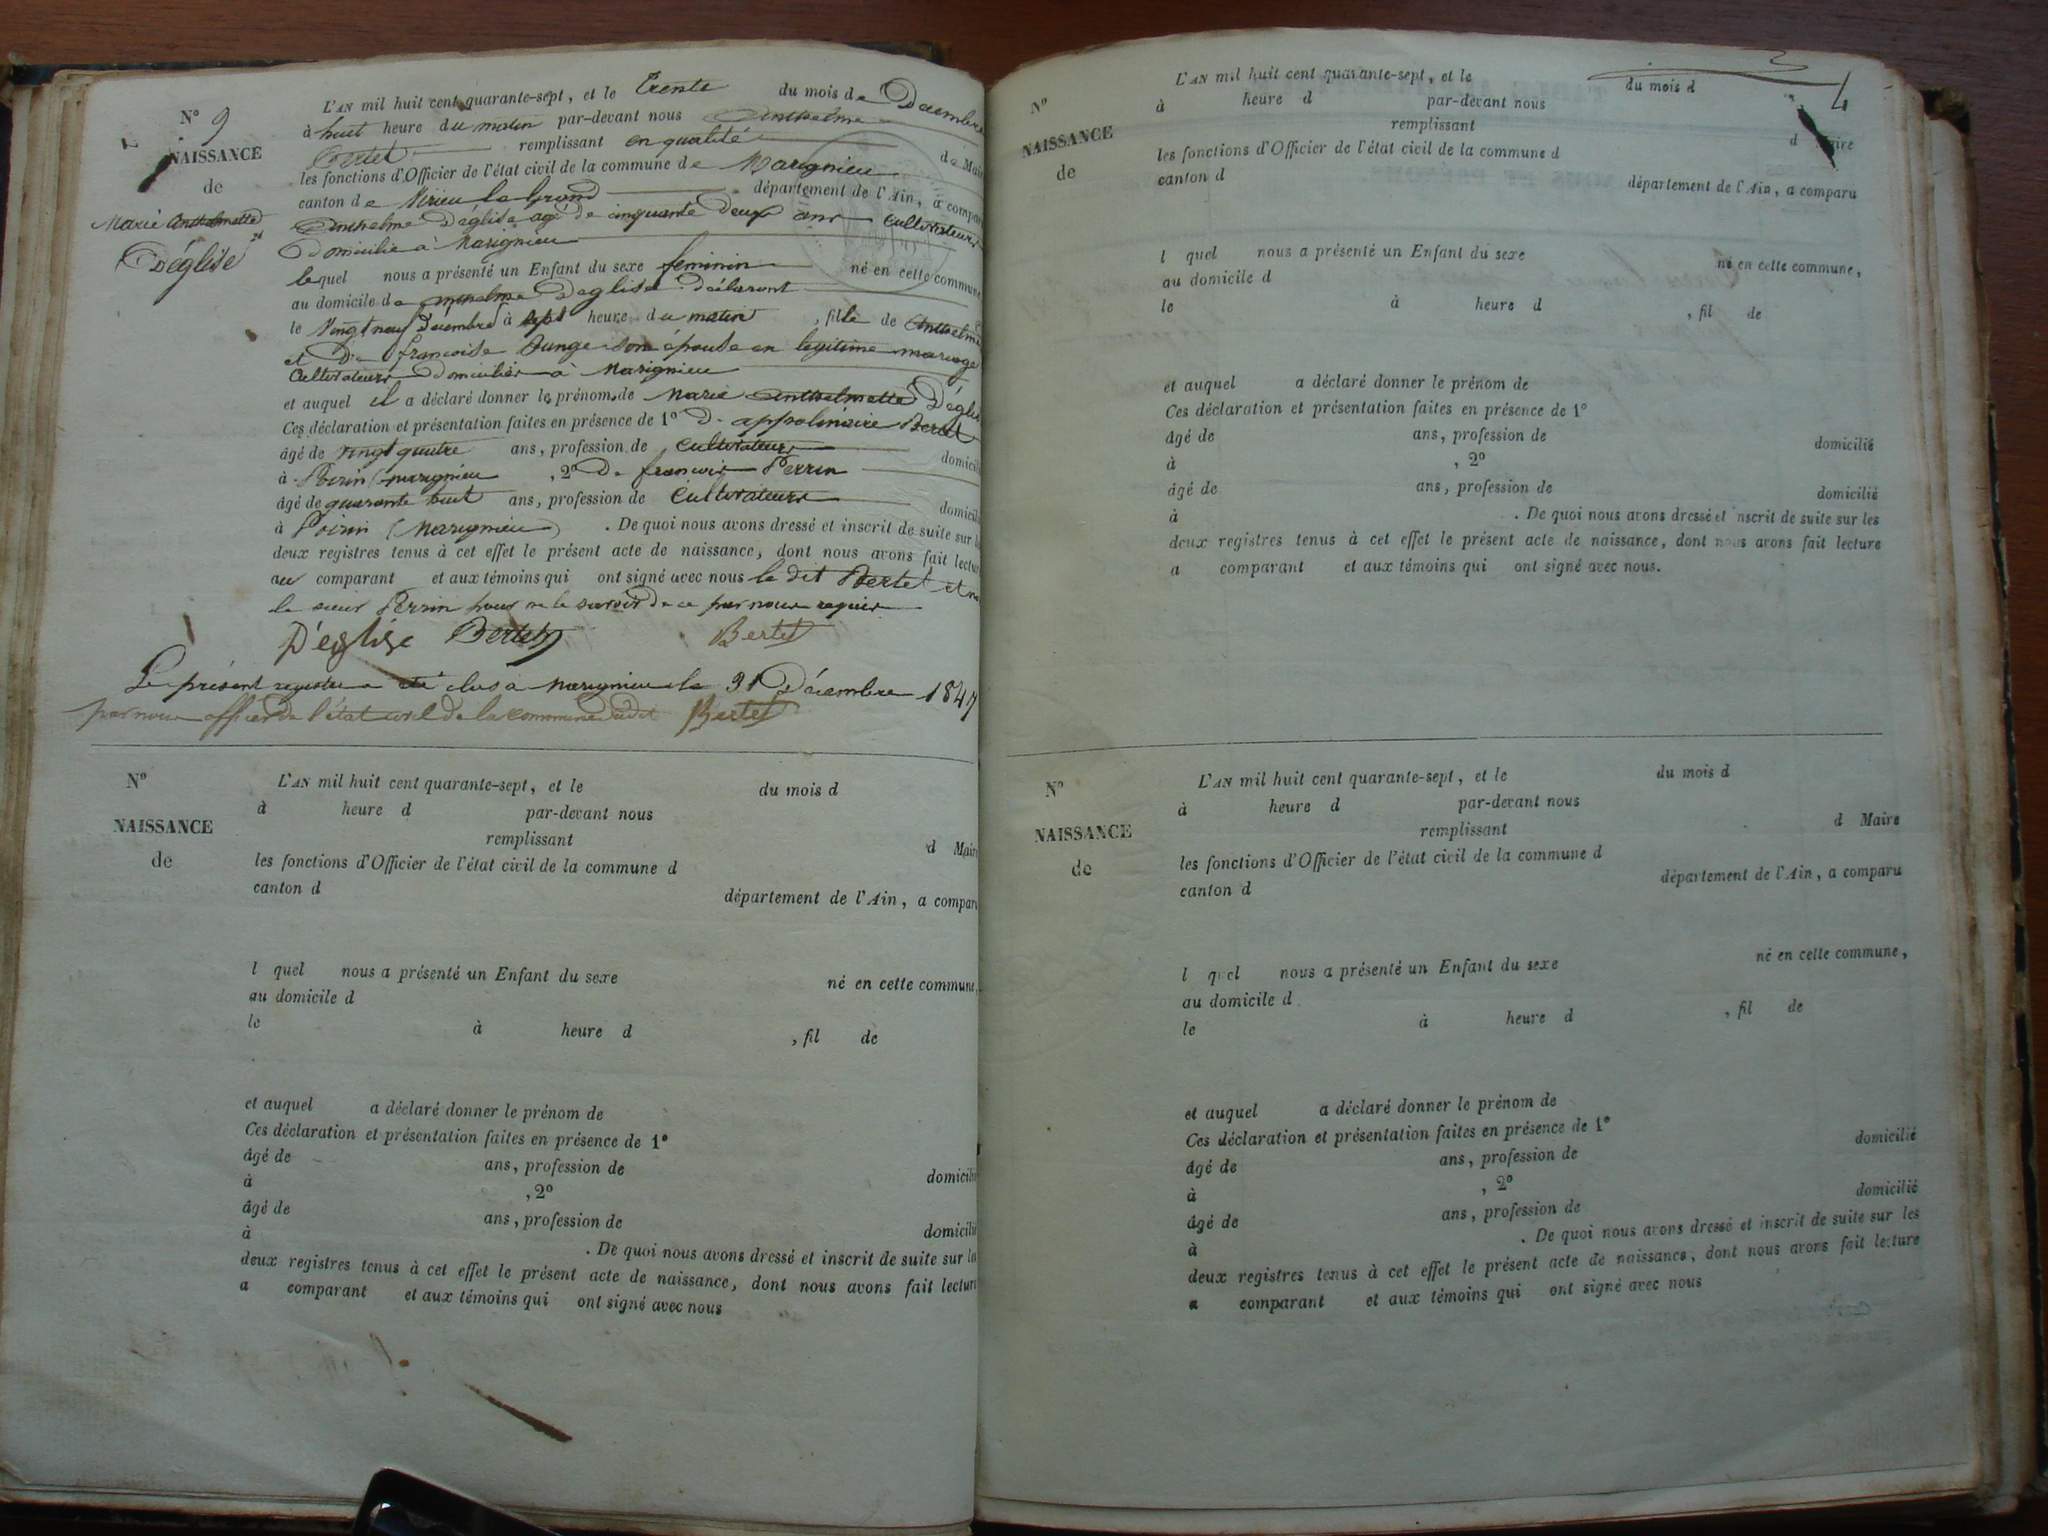 N° 9
NAISSANCE
de
Marie Anthelmette
D'églisé
L'AN mil huit cent quarante-sept, et le Trente du mois de Décembre
à huit heure du matin par-devant nous Anthelme
Bertet remplissant en qualité de Mair
les fonctions d'Officier de l'état civil de la commune de Marignieu
canton de Virieu le Grand département de l'Ain, a compar
Anthelme D'églisé agé de cinquante deux ans cultivateur
domicilié à Marignieu
lequel nous a présenté un Enfant du sexe feminin né en cette commune
au domicile de anthelme D'églisé déclarant
le Vingt neuf Décembre à sept heure du matin, fille de Anthelme
et De françoise son épouse en legitime mariage
Cultivateurs domiciliés à Marignieu
et auquel il a déclaré donner le prénom de Marie Anthelmette D'églis
Ces déclaration et présentation faites en présence de 1° D. appolinaire Bertet
âgé de vingt quatre ans, profession de Cultivateur domicili
à Poirin (marignieu, 2° De francois Perrin
âgé de quarante huit ans, profession de Cultivateur domicili
à Poirin (Marignieu). De quoi nous avons dressé et inscrit de suite sur l
deux registres tenus à cet effet le présent acte de naissance, dont nous avons fait lectur
au comparant et aux témoins qui ont signé avec nous le dit Bertet et n
le sieur Perrin pour ne le savoir de ce par nous requis
D'églize Bertet Bertet
Le présent registre a été clos à Marignieu le 31 Décembre 1847
par nous officier de l'état civil de la commune dudit Bertet
N°
NAISSANCE
de
L'AN mil huit cent quarante-sept, et le du mois d
à heure d par-devant nous
remplissant d Mair
les fonctions d'Officier de l'état civil de la commune d
canton d département de l'Ain, a compar
l quel nous a présenté un Enfant du sexe né en cette commune,
au domicile d
le à heure d , fil de
et auquel a déclaré donner le prénom de
Ces déclaration et présentation faites en présence de 1°
âgé de ans, profession de domicili
à , 2°
âgé de ans, profession de domicili
à . De quoi nous avons dressé et inscrit de suite sur le
deux registres tenus à cet effet le présent acte de naissance, dont nous avons fait lectur
a comparant et aux témoins qui ont signé avec nous
4
N°
NAISSANCE
de
L'AN mil huit cent quarante-sept, et le du mois d
à heure d par-devant nous
remplissant d aire
les fonctions d'Officier de l'état civil de la commune d
canton d département de l'Ain, a comparu
l quel nous a présenté un Enfant du sexe né en cette commune,
au domicile d
le à heure d , fil de
et auquel a déclaré donner le prénom de
Ces déclaration et présentation faites en présence de 1°
âgé de ans, profession de domicilié
à , 2°
âgé de ans, profession de domicilié
à . De quoi nous avons dressé et inscrit de suite sur les
deux registres tenus à cet effet le présent acte de naissance, dont nous avons fait lecture
a comparant et aux témoins qui ont signé avec nous.
N°
NAISSANCE
de
L'AN mil huit cent quarante-sept, et le du mois d
à heure d par-devant nous
remplissant d Maire
les fonctions d'Officier de l'état civil de la commune d
canton d département de l'Ain, a comparu
l quel nous a présenté un Enfant du sexe né en cette commune,
au domicile d
le à heure d , fil de
et auquel a déclaré donner le prénom de
Ces déclaration et présentation faites en présence de 1°
âgé de ans, profession de domicilié
à , 2°
âgé de ans, profession de domicilié
à . De quoi nous avons dressé et inscrit de suite sur les
deux registres tenus à cet effet le présent acte de naissance, dont nous avons fait lecture
a comparant et aux témoins qui ont signé avec nous